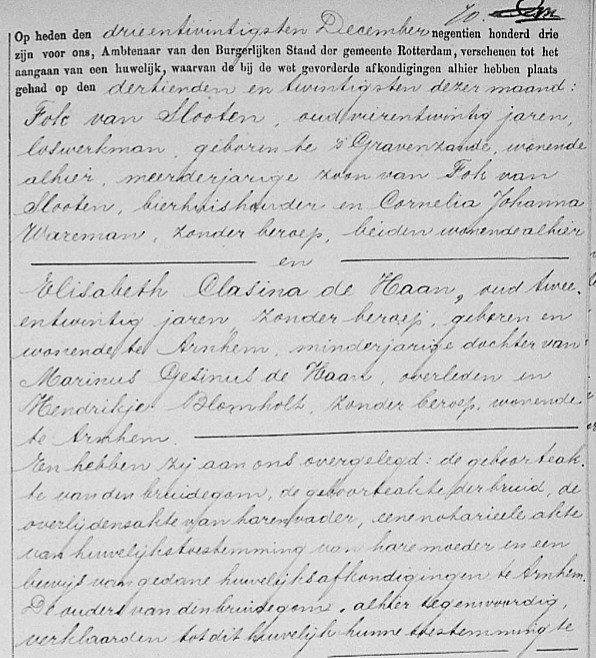 Op heden den drieentwintigsten December negentien honderd drie
zijn voor ons, Ambtenaar van den Burgerlijken Stand der gemeente Rotterdam, verschenen tot het
aangaan van een huwelijk, waarvan de bij de wet gevorderde afkondigingen alhier hebben plaats
gehad op den dertienden en twintigsten dezer maand:
Fok van Slooten, oud vierentwintig jaren,
loswerkman, geboren te 's Gravenzande, wonende
alhier, meerderjarige zoon van Fok van
Slooten, bierhuishouder en Cornelia Johanna
Wareman, zonder beroep, beiden wonende alhier
en
Elisabeth Clasina de Haan, oud twee-
entwintig jaren, zonder beroep, geboren en
wonende te Arnhem, minderjarige dochter van
Marinus Gesinus de Haan, overleden en
Hendrikje Blomholt, zonder beroep, wonende
te Arnhem.
En hebben zij aan ons overgelegd: de geboorteak-
te van den bruidegom, de geboorteakte der bruid, de
overlijdensakte van haren vader, eene notarieele akte
van huwelijkstoestemming van hare moeder en een
bewijs van gedane huwelijksafkondigingen te Arnhem.
De ouders van den bruidegom, alhier tegenwoordig,
verklaarden tot dit huwelijk hunne toestemming te